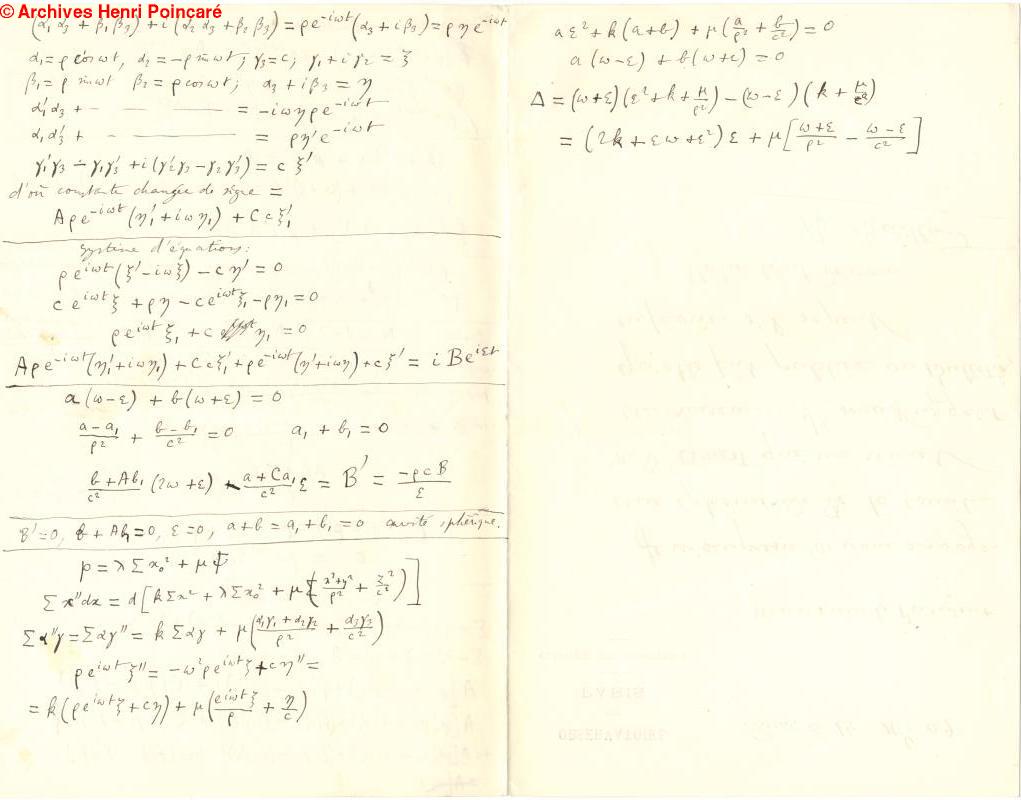 © Archives Henri Poincaré
(α₁'α₃ + β₁'β₃) + i(α₂'α₃ + β₂'β₃) = ρe^{-iωt}(α₃ + iβ₃) = ρηe^{-iωt}
α₁ = ρ cos ωt, α₂ = -ρ sin ωt; γ₃ = c; γ₁ + iγ₂ = ξ
β₁ = ρ sin ωt β₂ = ρ cos ωt; α₃ + iβ₃ = η
α₁'α₃ + - — = -iωηρe^{-iωt}
α₁α₃' + — — = ρη'e^{-iωt}
γ₁'γ₃ - γ₁γ₃' + i(γ₂'γ₃ - γ₂γ₃') = cξ'
d'où constante changée de signe =
Aρe^{-iωt}(η₁' + iωη₁) + Ccξ₁'
système d'équations:
ρe^{iωt}(ξ' - iωξ) - cη' = 0
ce^{iωt}ξ + ρη - ce^{iωt}ξ₁ - ρη₁ = 0
ρe^{iωt}ξ₁ + cη₁ = 0
Aρe^{-iωt}(η₁' + iωη₁) + Ccξ₁' + ρe^{-iωt}(η' + iωη) + cξ' = iBe^{iεt}
a(ω-ε) + b(ω+ε) = 0
\frac{a-a₁}{ρ²} + \frac{b-b₁}{c²} = 0 a₁ + b₁ = 0
\frac{b+Ab₁}{c²}(2ω+ε) + \frac{a+Ca₁}{c²}ε = B' = \frac{-ρcB}{ε}
B' = 0, b + Ab₁ = 0, ε = 0, a + b = a₁ + b₁ = 0 cavité sphérique.
p = λΣx₀² + μΨ
Σx''dx = d[kΣx² + λΣx₀² + μ(\frac{x²+y²}{ρ²} + \frac{z²}{c²})]
Σα''γ = Σαγ'' = kΣαγ + μ(\frac{α₁γ₁ + α₂γ₂}{ρ²} + \frac{α₃γ₃}{c²})
ρe^{iωt}ξ'' = -ω²ρe^{iωt}ξ + cη'' =
= k(ρe^{iωt}ξ + cη) + μ(\frac{e^{iωt}ξ}{ρ} + \frac{η}{c})
aε² + k(a+b) + μ(\frac{a}{ρ²} + \frac{b}{c²}) = 0
a(ω-ε) + b(ω+ε) = 0
Δ = (ω+ε)(ε² + k + \frac{μ}{ρ²}) - (ω-ε)(k + \frac{μ}{c²})
= (2k + εω + ε²)ε + μ[\frac{ω+ε}{ρ²} - \frac{ω-ε}{c²}]